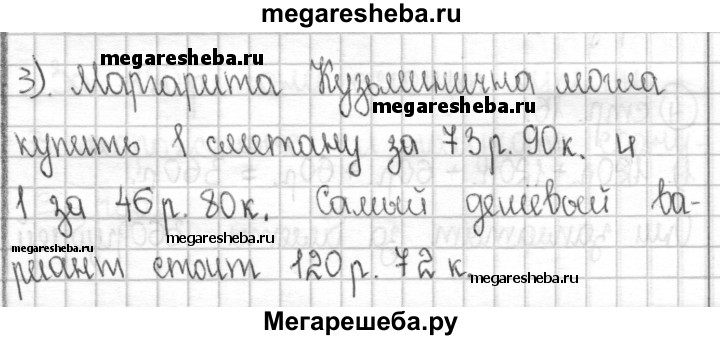 megaresheba.ru
megaresheba.ru
3). Маргарита Кузьминична могла
megaresheba.ru
купить 1 сметану за 73 р. 90 к. и
1 за 46 р. 80 к. Самый дешёвый ва-
megaresheba.ru
megaresheba.ru
риант стоит 120 р. 72 к.
megaresheba.ru
Мегарешеба.ру